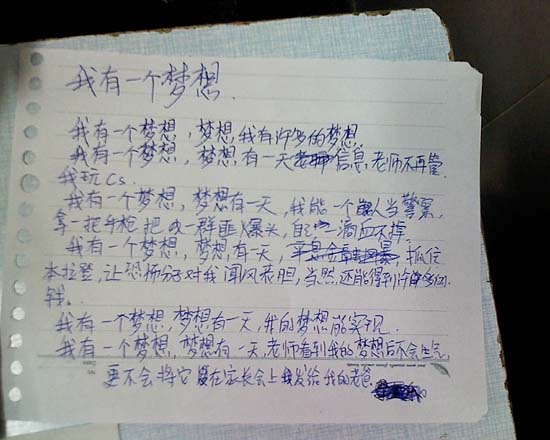 我有一个梦想.
我有一个梦想,梦想,我有许多的梦想.
我有一个梦想,梦想,有一天信息老师不再管
我玩Cs.
我有一个梦想,梦想有一天,我能一个人当警察,
拿一把手枪把一群匪爆头,自己一滴血不掉.
我有一个梦想,梦想,有一天,抓住
本拉登,让恐怖分子对我闻风丧胆,当然,还能得到许多
钱。
我有一个梦想,梦想有一天,我的梦想能实现.
我有一个梦想,梦想有一天,老师看到我的梦想后不会生气,
更不会将它在家长会上发给我的老爸.